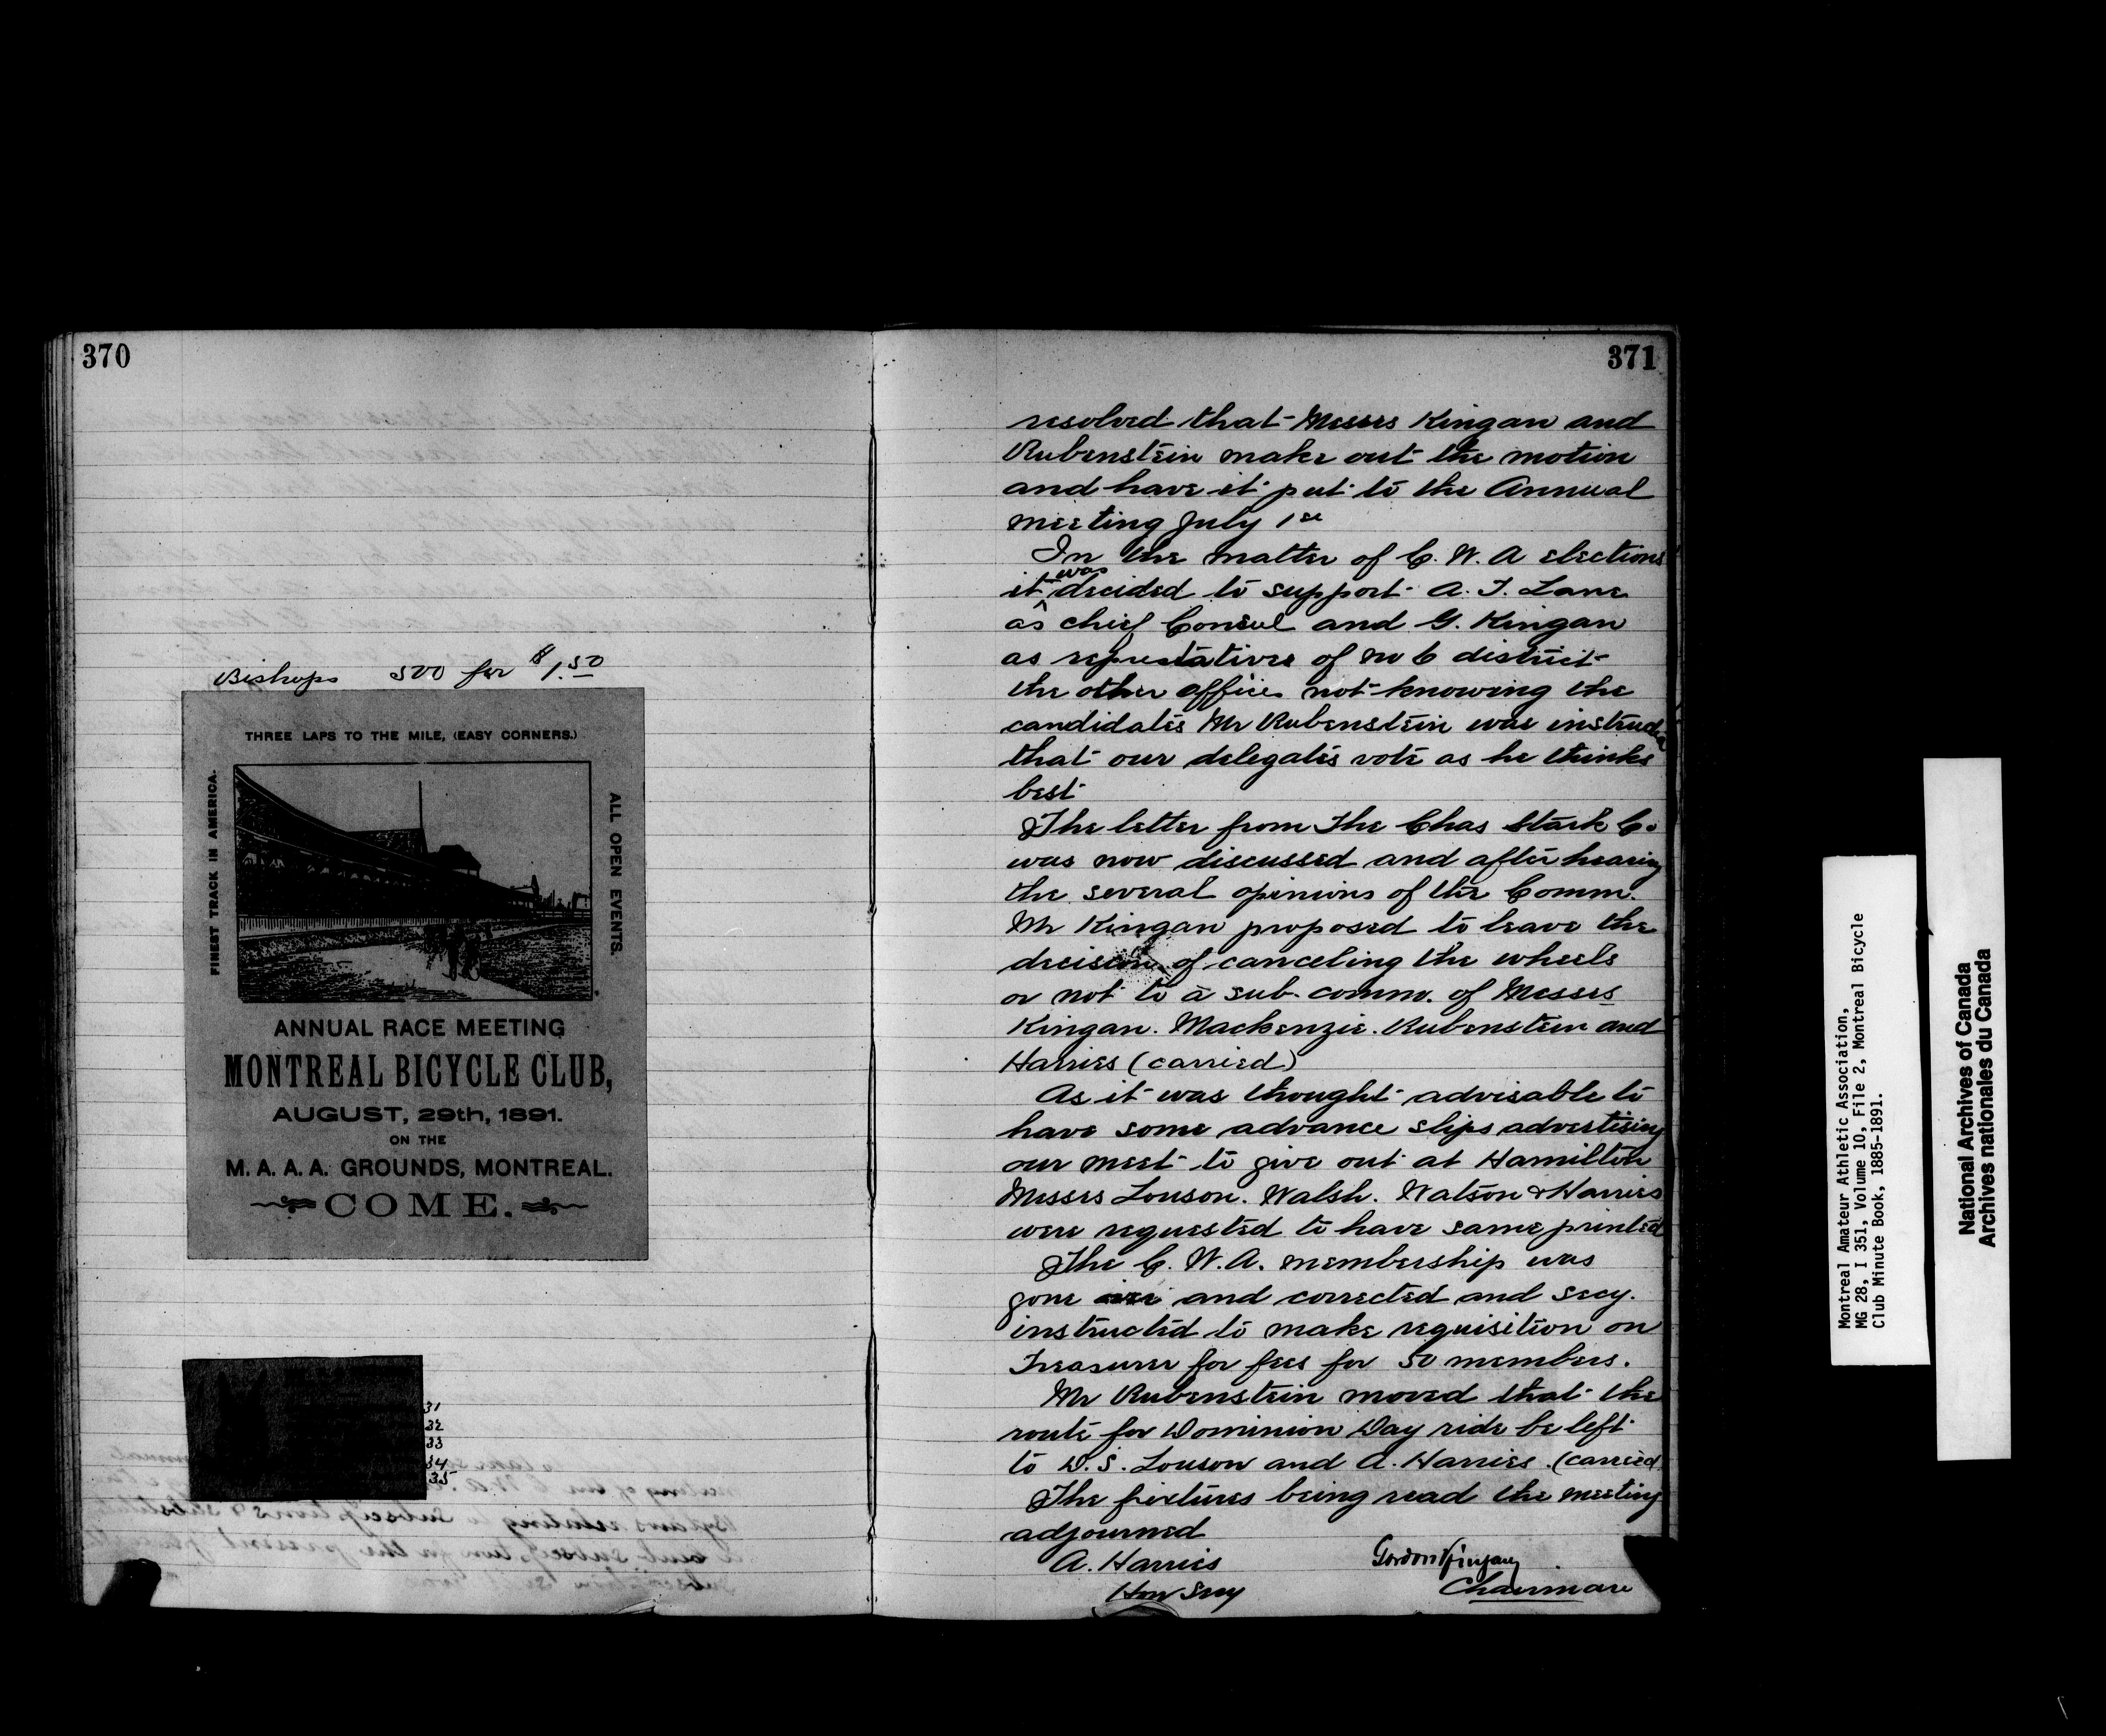 370
Bishops 500 for $1.50
THREE LAPS TO THE MILE, (EASY CORNERS.)
FINEST TRACK IN AMERICA.
ALL OPEN EVENTS.
ANNUAL RACE MEETING
MONTREAL BICYCLE CLUB,
AUGUST, 29th, 1891.
ON THE
M. A. A. A. GROUNDS, MONTREAL.
COME.
31
32
33
34
35
371
resolved that Messrs Kingan and
Rubenstein make out the motion
and have it put to the Annual
meeting July 1st
In the matter of C. W. A elections
it was decided to support A. T. Lane
as chief Consul and G. Kingan
as represtatives of no 6 district
the other offices not knowing the
candidates Mr Rubenstein was instructed
that our delegates vote as he thinks
best
The letter from The Chas Stark Co
was now discussed and after hearing
the several opinions of the Comm.
Mr Kingan proposed to leave the
decision of canceling the wheels
or not to a sub-comm. of Messrs
Kingan. Mackenzie. Rubenstein and
Harries (carried)
As it was thought advisable to
have some advance slips advertising
our meet to give out at Hamilton
Messrs Louson. Walsh. Watson & Harries
were requested to have same printed
The C. W. A. membership was
gone over and corrected and secy.
instructed to make requisition on
Treasurer for fees for 50 members.
Mr Rubenstein moved that the
route for Dominion Day ride be left
to D. S. Louson and A. Harries. (carried
The fixtures being read the meeting
adjourned
A. Harries
Hon Secy
Gordon Kingan
Chairman
Montreal Amateur Athletic Association,
MG 28, I 351, Volume 10, File 2, Montreal Bicycle
Club Minute Book, 1885-1891.
National Archives of Canada
Archives nationales du Canada